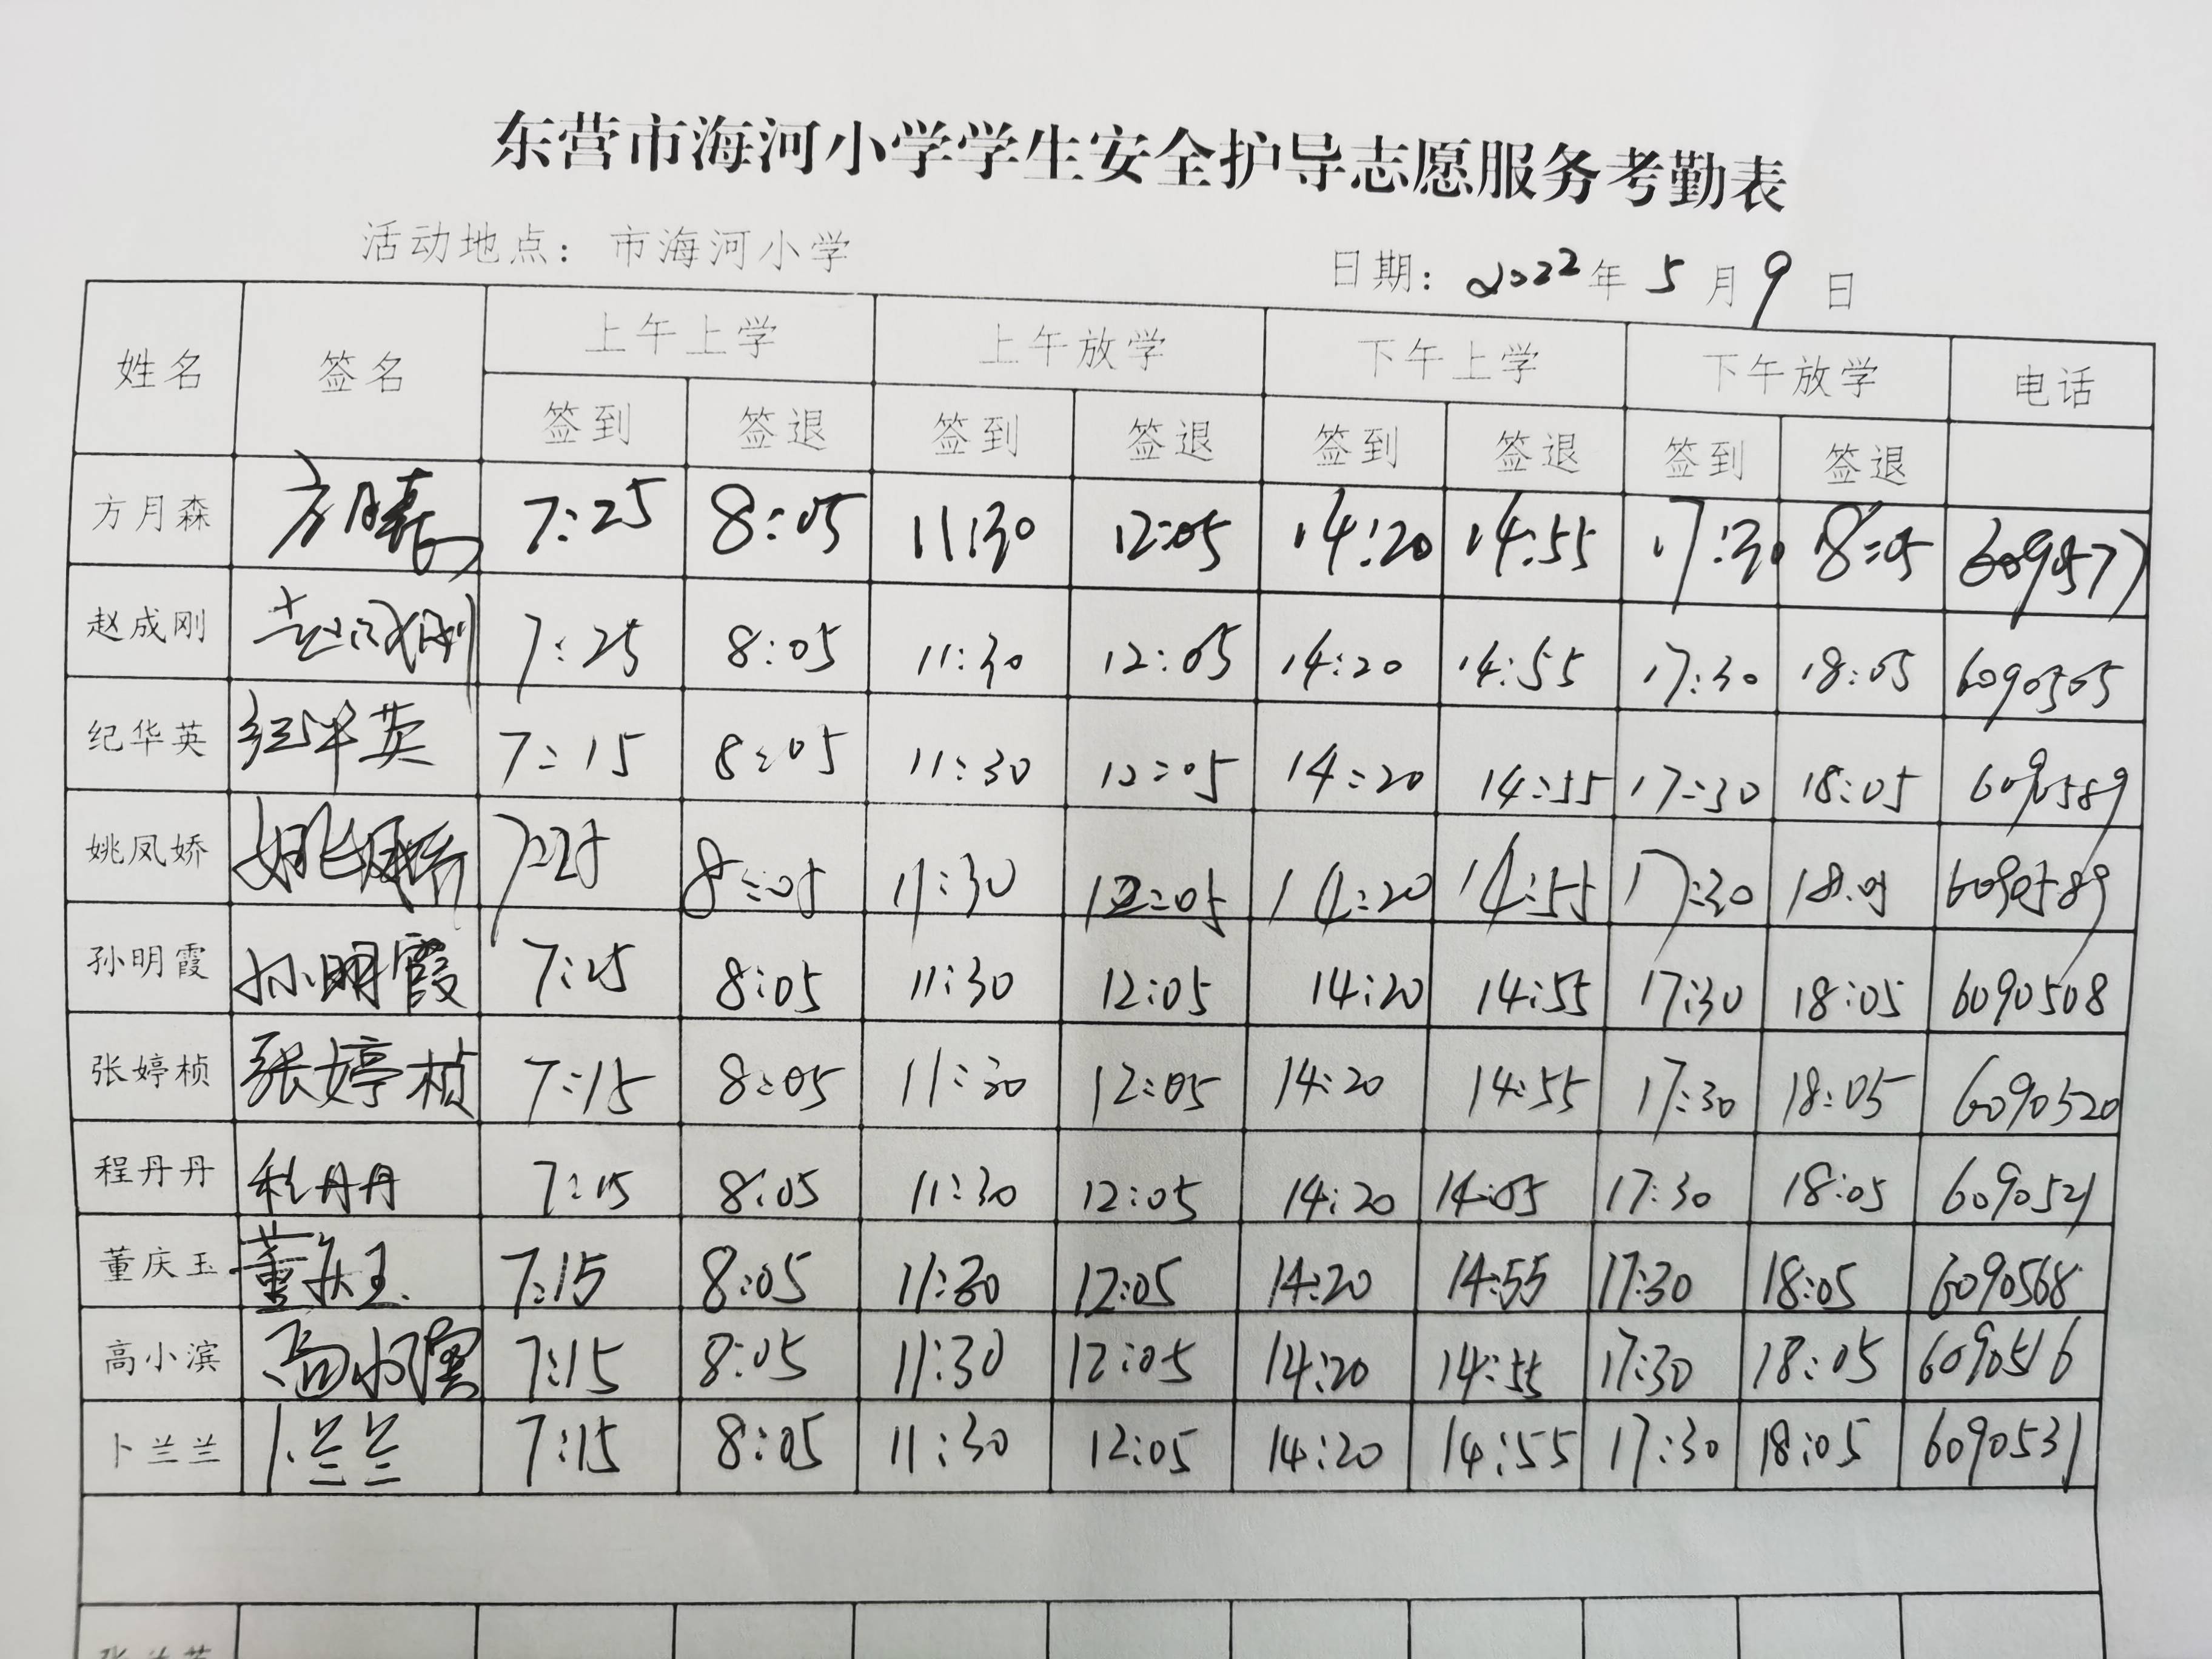 东营市海河小学学生安全护导志愿服务考勤表
活动地点：市海河小学 日期：2022年5月9日
姓名 签名 上午上学 上午放学 下午上学 下午放学 电话
签到 签退 签到 签退 签到 签退 签到 签退
方月森 方月森 7:25 8:05 11:30 12:05 14:20 14:55 17:30 18:05 6090577
赵成刚 赵成刚 7:25 8:05 11:30 12:05 14:20 14:55 17:30 18:05 6090505
纪华英 纪华英 7:15 8:05 11:30 12:05 14:20 14:55 17:30 18:05 6090589
姚凤娇 姚凤娇 7:25 8:05 11:30 12:05 14:20 14:55 17:30 18:05 6090589
孙明霞 孙明霞 7:25 8:05 11:30 12:05 14:20 14:55 17:30 18:05 6090508
张婷桢 张婷桢 7:15 8:05 11:30 12:05 14:20 14:55 17:30 18:05 6090520
程丹丹 程丹丹 7:15 8:05 11:30 12:05 14:20 14:55 17:30 18:05 6090521
董庆玉 董庆玉 7:15 8:05 11:30 12:05 14:20 14:55 17:30 18:05 6090568
高小滨 高小滨 7:15 8:05 11:30 12:05 14:20 14:55 17:30 18:05 6090516
卜兰兰 卜兰兰 7:15 8:05 11:30 12:05 14:20 14:55 17:30 18:05 6090531